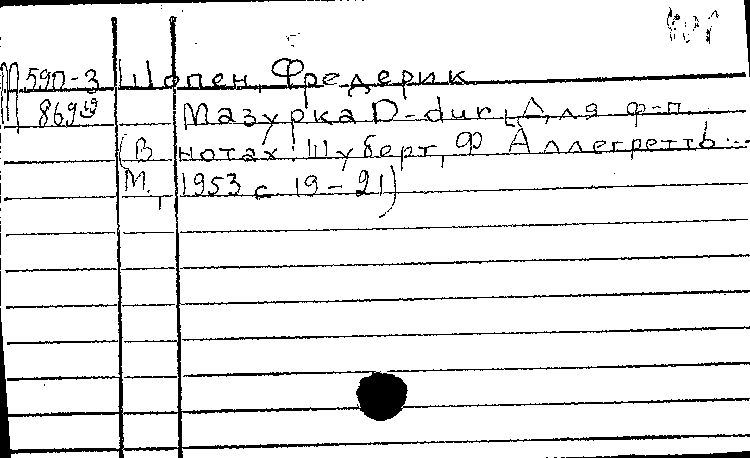 М 59П-3 Шопен, Фредерик
869 Мазурка D-dur [Для ф-п.
(В нотах: Шуберт, Ф. Аллегретто...
М., 1953 с. 19-21)